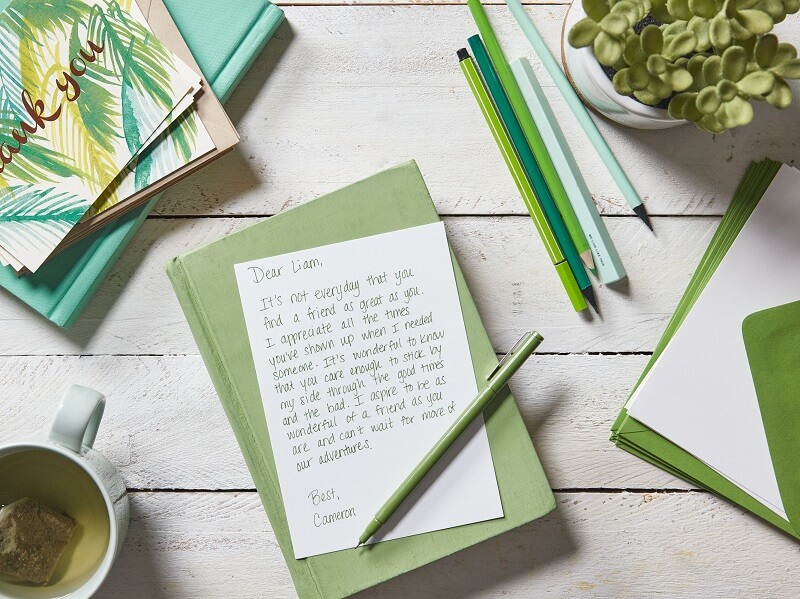 thank you
Dear Liam,
It's not everyday that you
find a friend as great as you.
I appreciate all the times
you've shown up when I needed
someone. It's wonderful to know
that you care enough to stick by
my side through the good times
and the bad. I aspire to be as
wonderful of a friend as you
are and can't wait for more of
our adventures.
Best,
Cameron